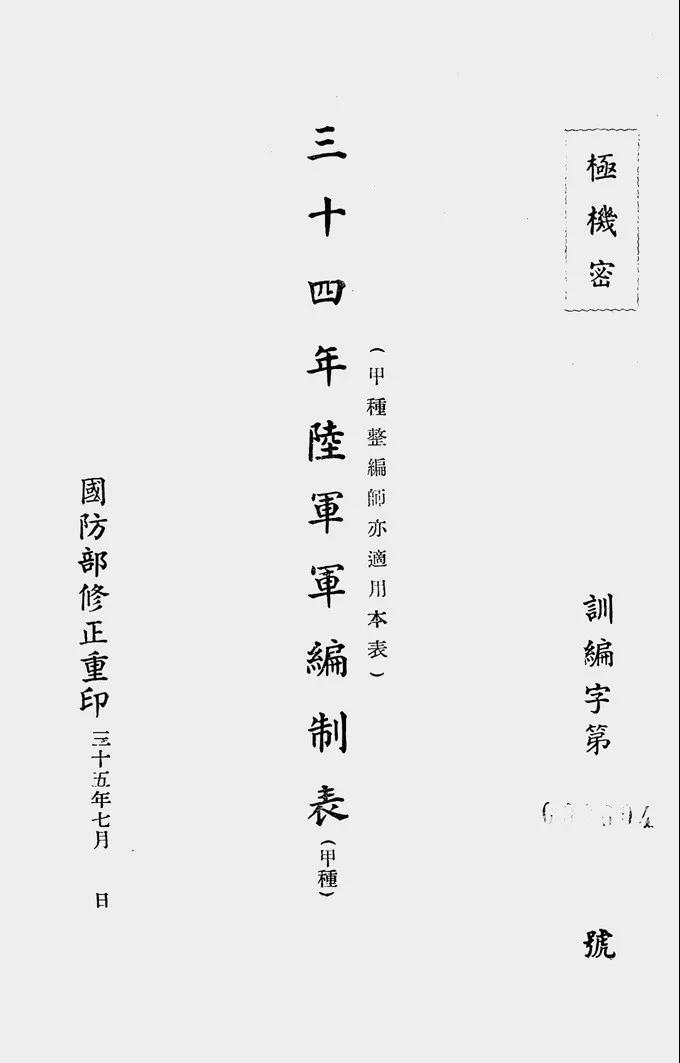 極機密
訓編字第
號
(甲種整編師亦適用本表)
三十四年陸軍軍編制表(甲種)
國防部修正重印三十五年七月 日